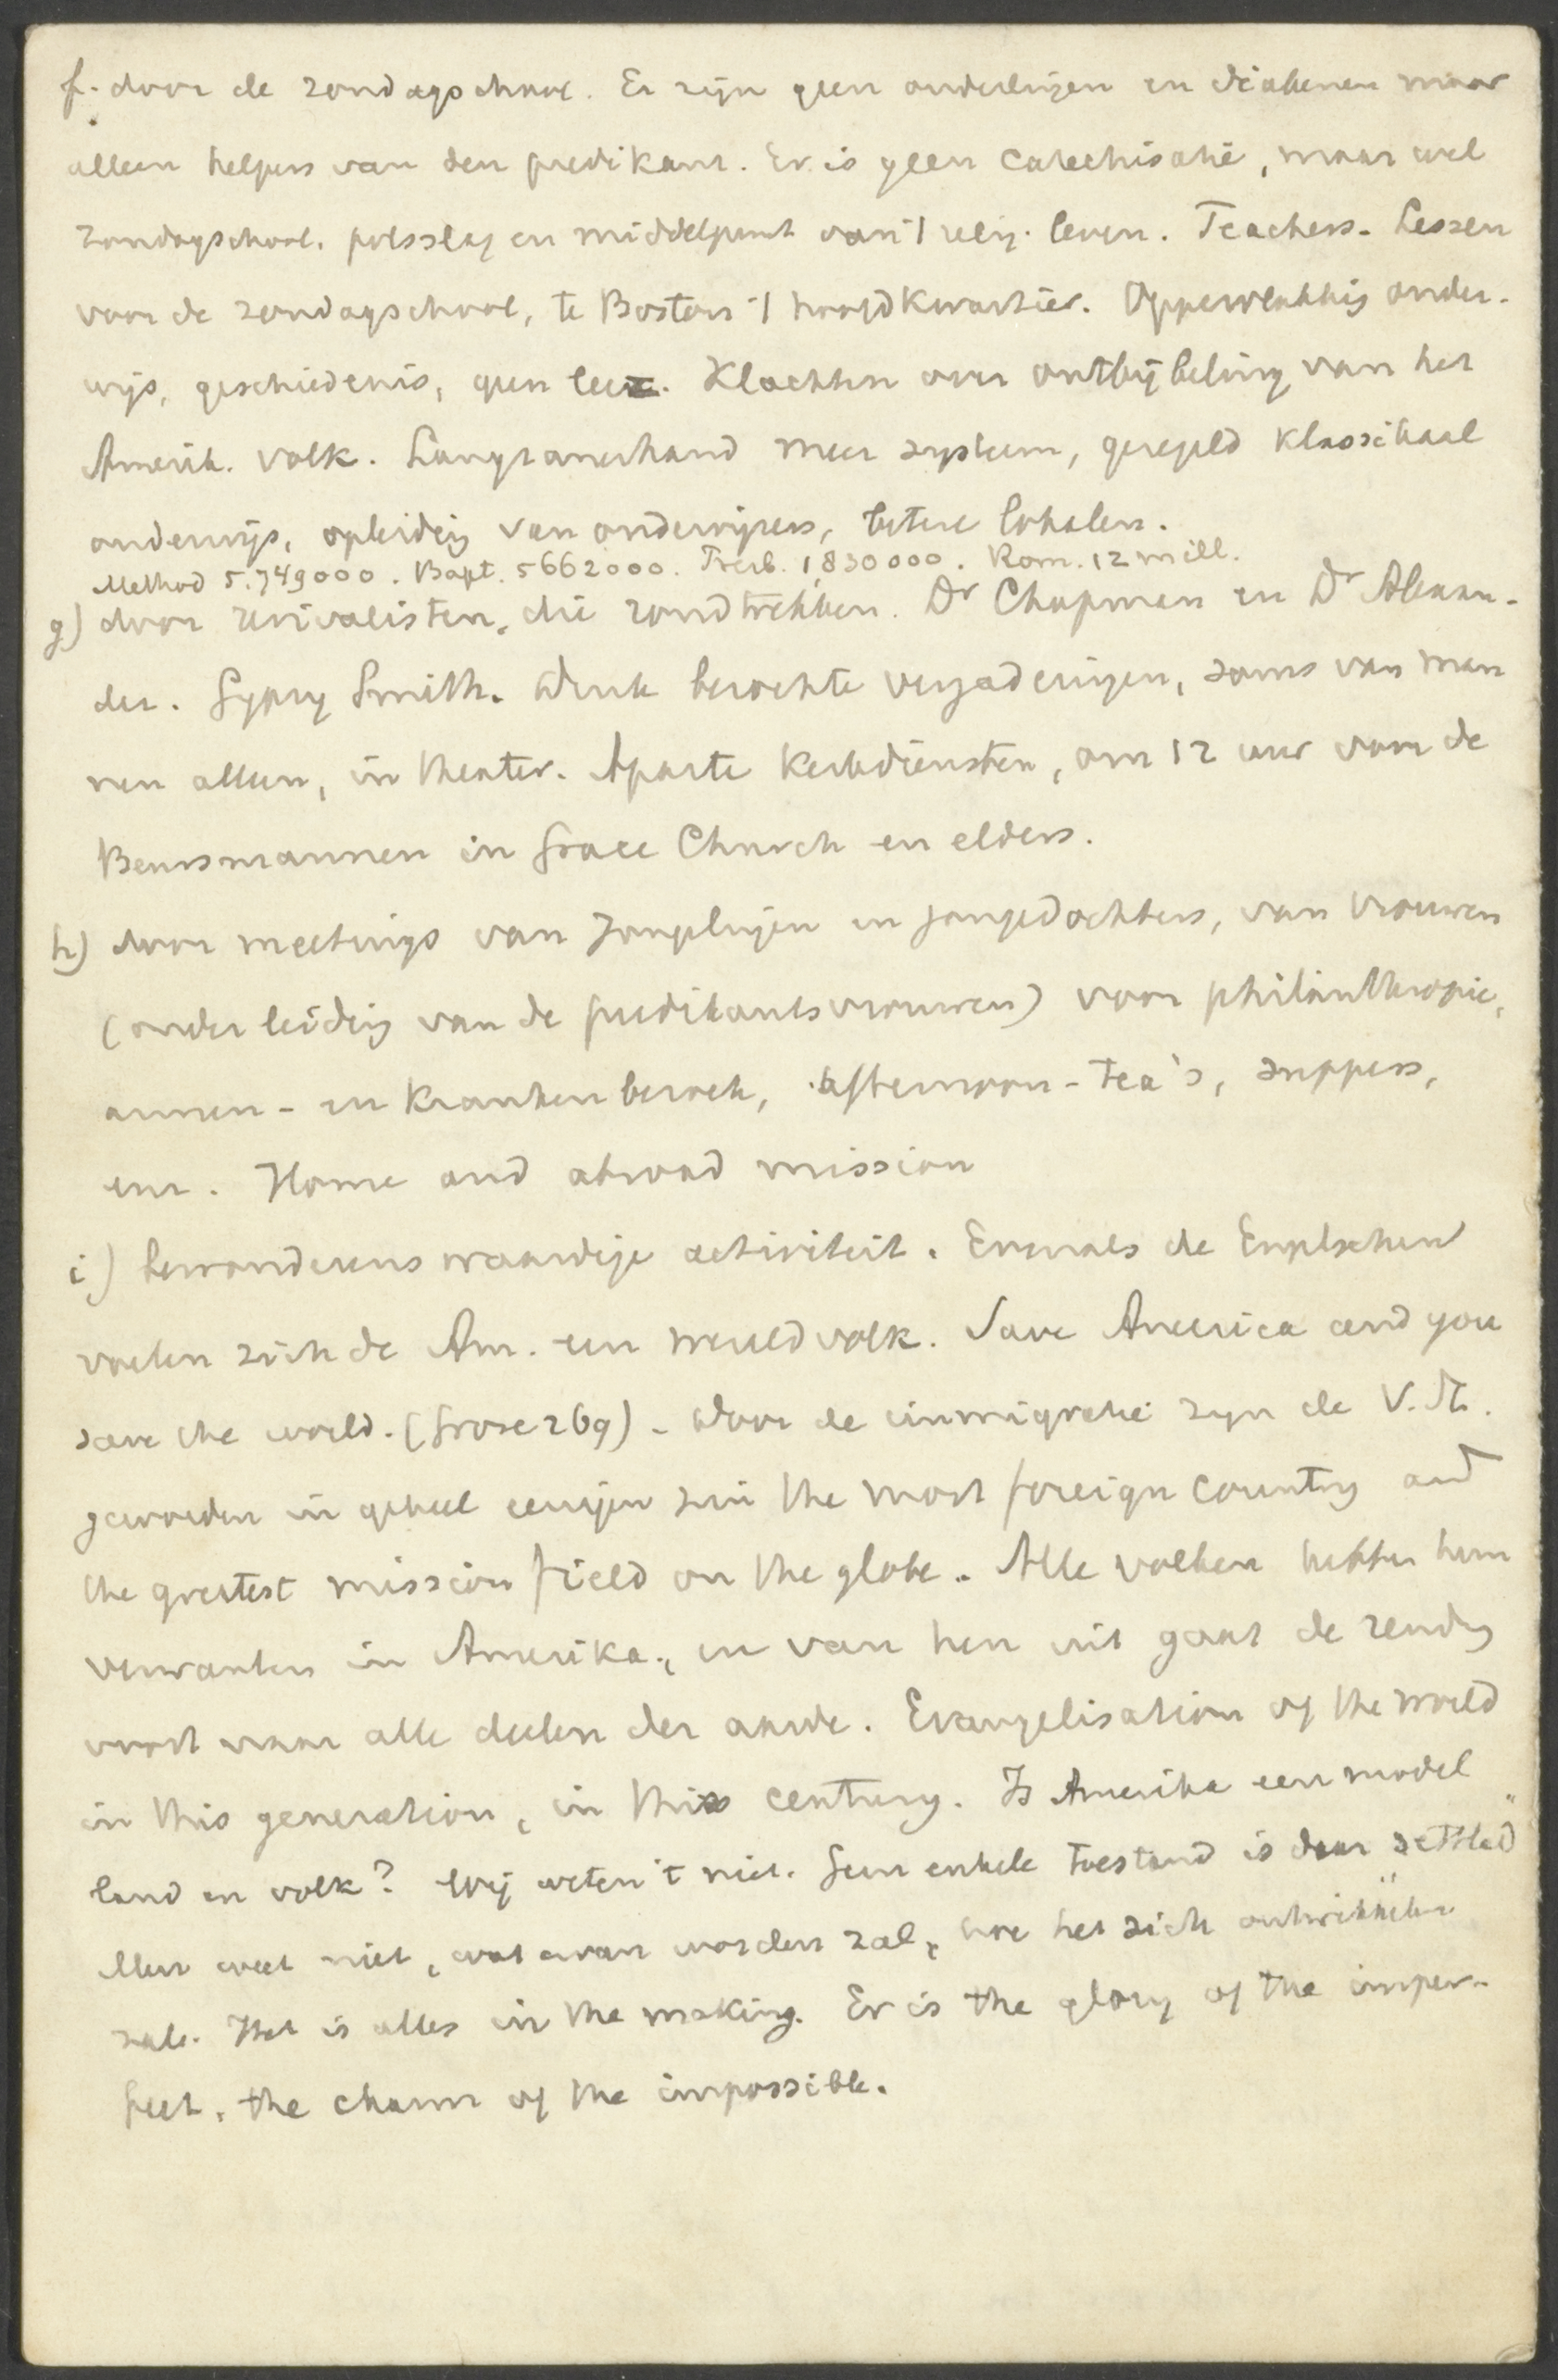 f. door de zondagschool. Er zijn geen ouderlingen en diakenen maar
alleen helpers van den predikant. Er is geen catechisatie, maar wel
zondagschool, polsslag en middelpunt van 't relig. leven. Teachers. Lessen
voor de zondagschool, te Boston 't hoofdkwartier. Oppervlakkig onder-
wijs, geschiedenis, geen leer. Klachten over ontbijbeling van het
Amerik. volk. Langzamerhand meer systeem, geregeld klassikaal
onderwijs, opleidig van onderwijzers, betere lokalen.
Method 5.749000. Bapt. 5662000. Presb. 1,830000. Rom. 12 mill.
g) door revivalisten, die rondtrekken. Dr Chapman en Dr Alexan-
der. Gypsy Smith. druk bezochte vergaderingen, soms van man
nen alleen, in theater. Aparte kerkdiensten, om 12 uur voor de
Beursmannen in Grace Church en elders.
h) door meetings van jongelingen en jongedochters, van vrouwen
(onder leidig van de predikantsvrouwen) voor philanthropie,
armen- en krankenbezoek, afternoon-tea's, suppers,
enz. Home and abroad mission
i) bewonderenswaardige activiteit. Evenals de Engelschen
voelen zich de Am. een wereldvolk. Save America and you
save the world. (Grose 269) - door de immigratie zijn de V. St.
geworden in geheel eenigen zin the most foreign country and
the greatest mission field on the globe. Alle volken hebben hun
verwanten in Amerika, en van hen uit gaat de zendig
voort naar alle deelen der aarde. Evangelisation of the world
in this generation, in this century. Is Amerika een model
land en volk? Wij weten 't niet. Geen enkele toestand is daar „settled"
Men weet niet, wat ervan worden zal, hoe het zich ontwikkelen
zal. Het is alles in the making. Er is the glory of the imper-
fect, the charm of the impossible.